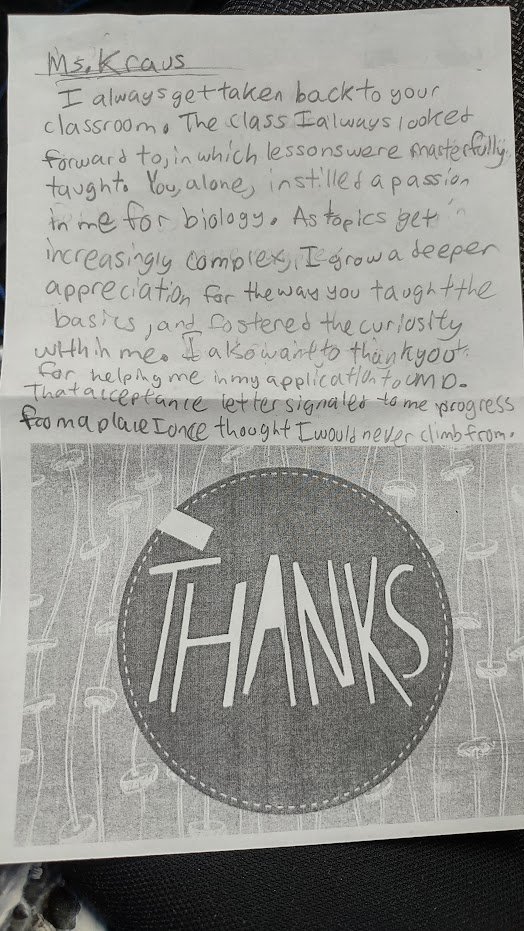 Ms. Kraus
I always get taken back to your
classroom. The class I always looked
forward to, in which lessons were masterfully
taught. You, alone, instilled a passion
in me for biology. As topics get
increasingly complex, I grow a deeper
appreciation for the way you taught the
basics, and fostered the curiosity
within me. I also want to thank you
for helping me in my application to UMD.
That acceptance letter signaled to me progress
from a place I once thought I would never climb from.
THANKS